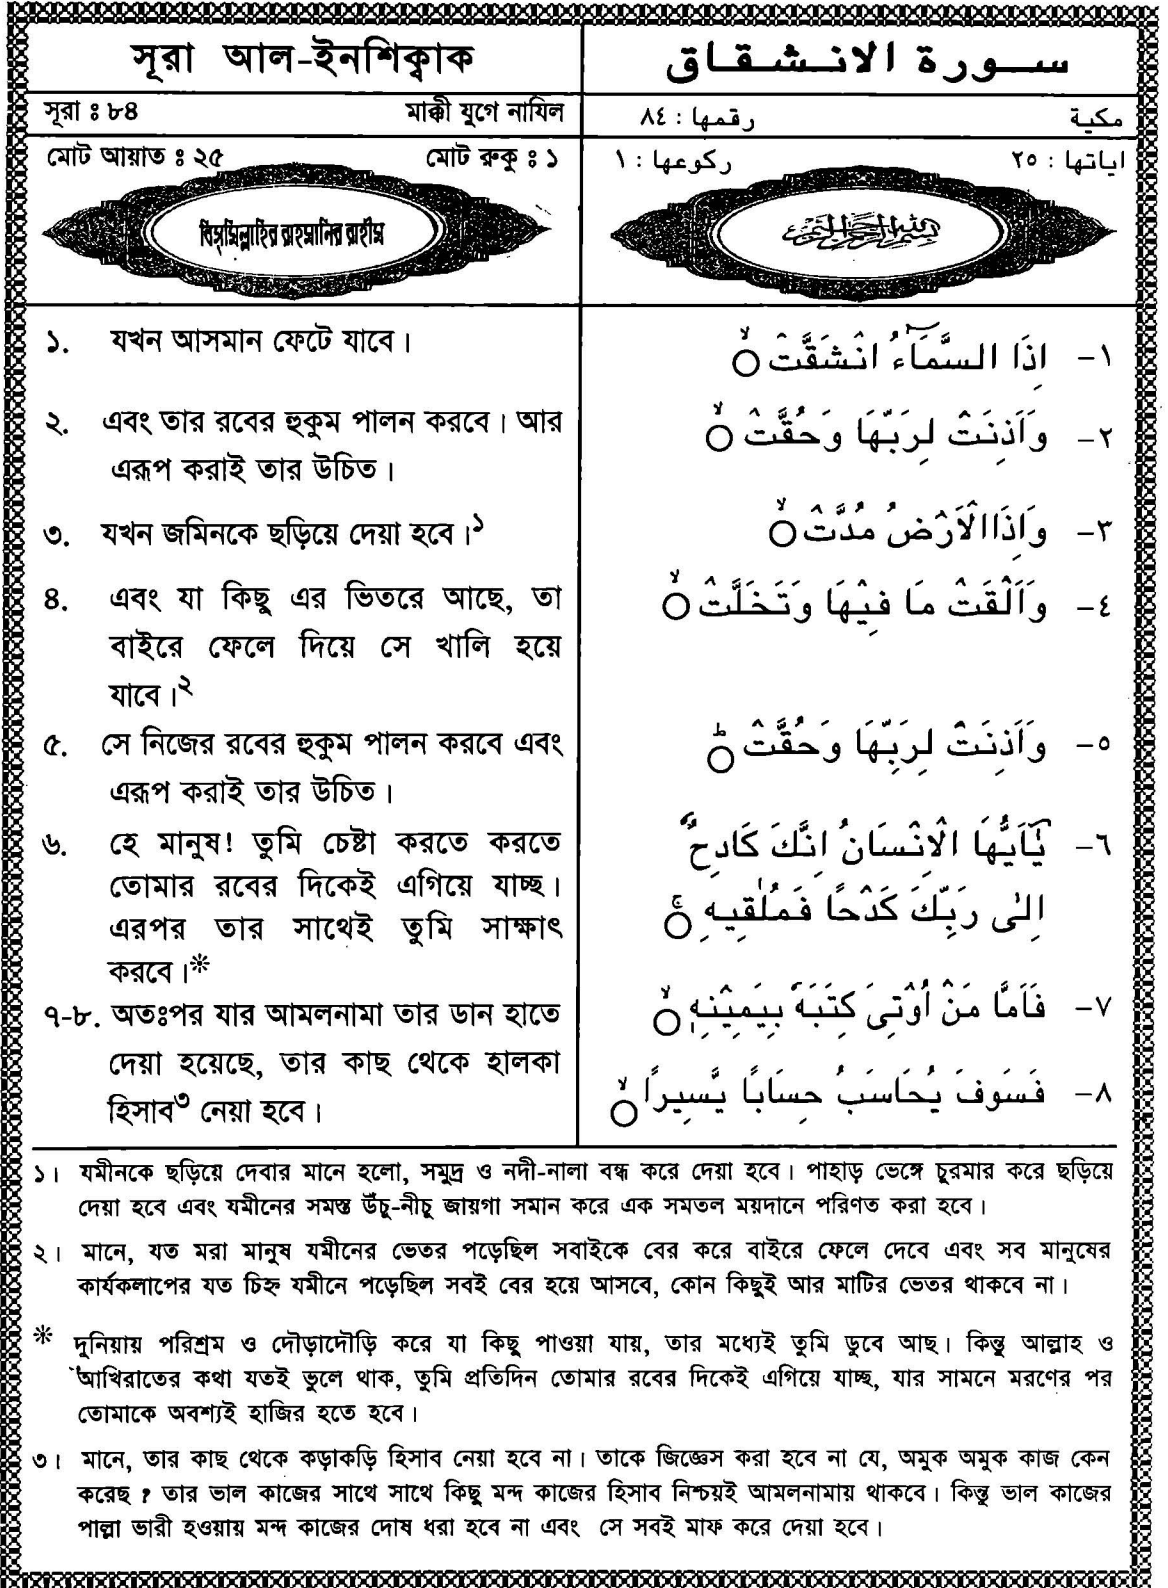 সূরা আল-ইনশিক্বাক
سورة الانشقاق
সূরা ঃ ৮৪ মাক্কী যুগে নাযিল
مكية رقمها : ٨٤
মোট আয়াত ঃ ২৫ মোট রুকু ঃ ১
اياتها : ٢٥ ركوعها : ١
বিস্মিল্লাহির রাহমানির রাহীম
بسم الله الرحمن الرحيم
১. যখন আসমান ফেটে যাবে।
২. এবং তার রবের হুকুম পালন করবে। আর
এরূপ করাই তার উচিত।
৩. যখন জমিনকে ছড়িয়ে দেয়া হবে।১
৪. এবং যা কিছু এর ভিতরে আছে, তা
বাইরে ফেলে দিয়ে সে খালি হয়ে
যাবে।২
৫. সে নিজের রবের হুকুম পালন করবে এবং
এরূপ করাই তার উচিত।
৬. হে মানুষ! তুমি চেষ্টা করতে করতে
তোমার রবের দিকেই এগিয়ে যাচ্ছ।
এরপর তার সাথেই তুমি সাক্ষাৎ
করবে।*
৭-৮. অতঃপর যার আমলনামা তার ডান হাতে
দেয়া হয়েছে, তার কাছ থেকে হালকা
হিসাব৩ নেয়া হবে।
١- اِذَا السَّمَآءُ انْشَقَّتْ ۙ○
٢- وَاَذِنَتْ لِرَبِّهَا وَحُقَّتْ ۙ○
٣- وَاِذَا الْاَرْضُ مُدَّتْ ۙ○
٤- وَاَلْقَتْ مَا فِيْهَا وَتَخَلَّتْ ۙ○
٥- وَاَذِنَتْ لِرَبِّهَا وَحُقَّتْ ؕ○
٦- يٰٓاَيُّهَا الْاِنْسَانُ اِنَّكَ كَادِحٌ
اِلٰى رَبِّكَ كَدْحًا فَمُلٰقِيْهِ ۚ○
٧- فَاَمَّا مَنْ اُوْتِىَ كِتٰبَهٗ بِيَمِيْنِهٖ ۙ○
٨- فَسَوْفَ يُحَاسَبُ حِسَابًا يَّسِيرًا ۙ○
১। যমীনকে ছড়িয়ে দেবার মানে হলো, সমুদ্র ও নদী-নালা বন্ধ করে দেয়া হবে। পাহাড় ভেঙ্গে চুরমার করে ছড়িয়ে
দেয়া হবে এবং যমীনের সমস্ত উঁচু-নীচু জায়গা সমান করে এক সমতল ময়দানে পরিণত করা হবে।
২। মানে, যত মরা মানুষ যমীনের ভেতর পড়েছিল সবাইকে বের করে বাইরে ফেলে দেবে এবং সব মানুষের
কার্যকলাপের যত চিহ্ন যমীনে পড়েছিল সবই বের হয়ে আসবে, কোন কিছুই আর মাটির ভেতর থাকবে না।
* দুনিয়ায় পরিশ্রম ও দৌড়াদৌড়ি করে যা কিছু পাওয়া যায়, তার মধ্যেই তুমি ডুবে আছ। কিন্তু আল্লাহ ও
আখিরাতের কথা যতই ভুলে থাক, তুমি প্রতিদিন তোমার রবের দিকেই এগিয়ে যাচ্ছ, যার সামনে মরণের পর
তোমাকে অবশ্যই হাজির হতে হবে।
৩। মানে, তার কাছ থেকে কড়াকড়ি হিসাব নেয়া হবে না। তাকে জিজ্ঞেস করা হবে না যে, অমুক অমুক কাজ কেন
করেছ ? তার ভাল কাজের সাথে সাথে কিছু মন্দ কাজের হিসাব নিশ্চয়ই আমলনামায় থাকবে। কিন্তু ভাল কাজের
পাল্লা ভারী হওয়ায় মন্দ কাজের দোষ ধরা হবে না এবং সে সবই মাফ করে দেয়া হবে।